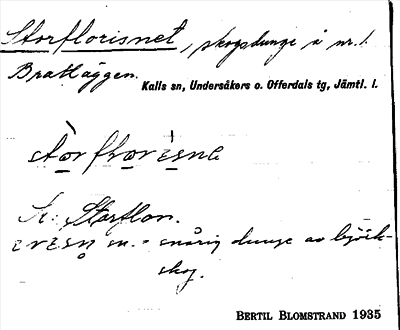 Storflorisnet, skogsdunge å nr. 1.
Bratläggen.
Kalls sn, Undersåkers o. Offerdals tg, Jämtl. l.
stòrflorìsne
Storflon.
m. = snårig dunge av björk-
skog.
BERTIL BLOMSTRAND 1935